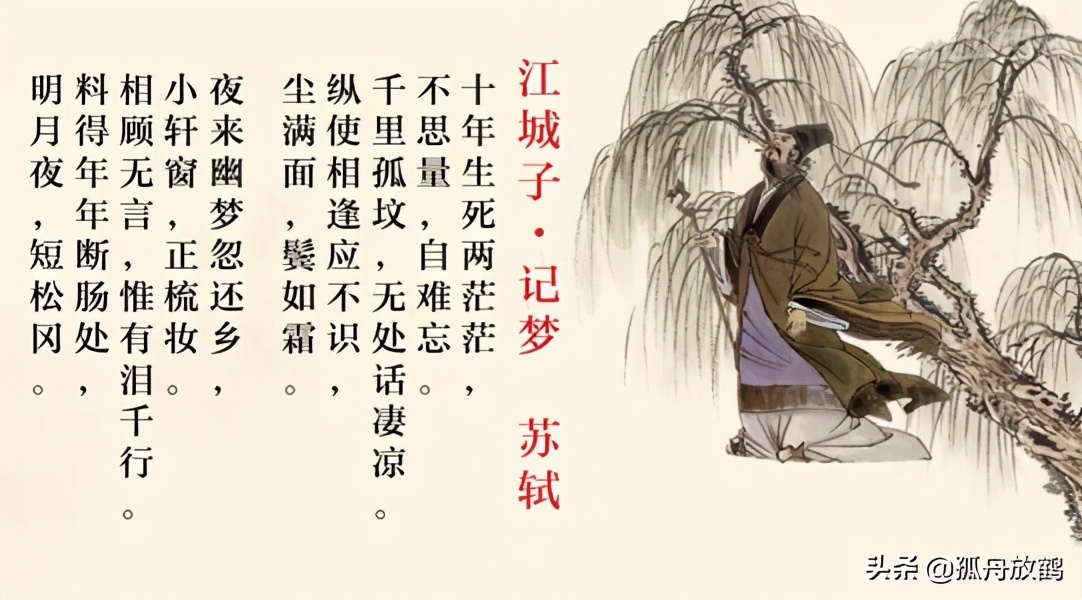 江城子·记梦 苏轼
十年生死两茫茫，
不思量，自难忘。
千里孤坟，无处话凄凉。
纵使相逢应不识，
尘满面，鬓如霜。
夜来幽梦忽还乡，
小轩窗，正梳妆。
相顾无言，惟有泪千行。
料得年年断肠处，
明月夜，短松冈。
头条 @孤舟放鹤